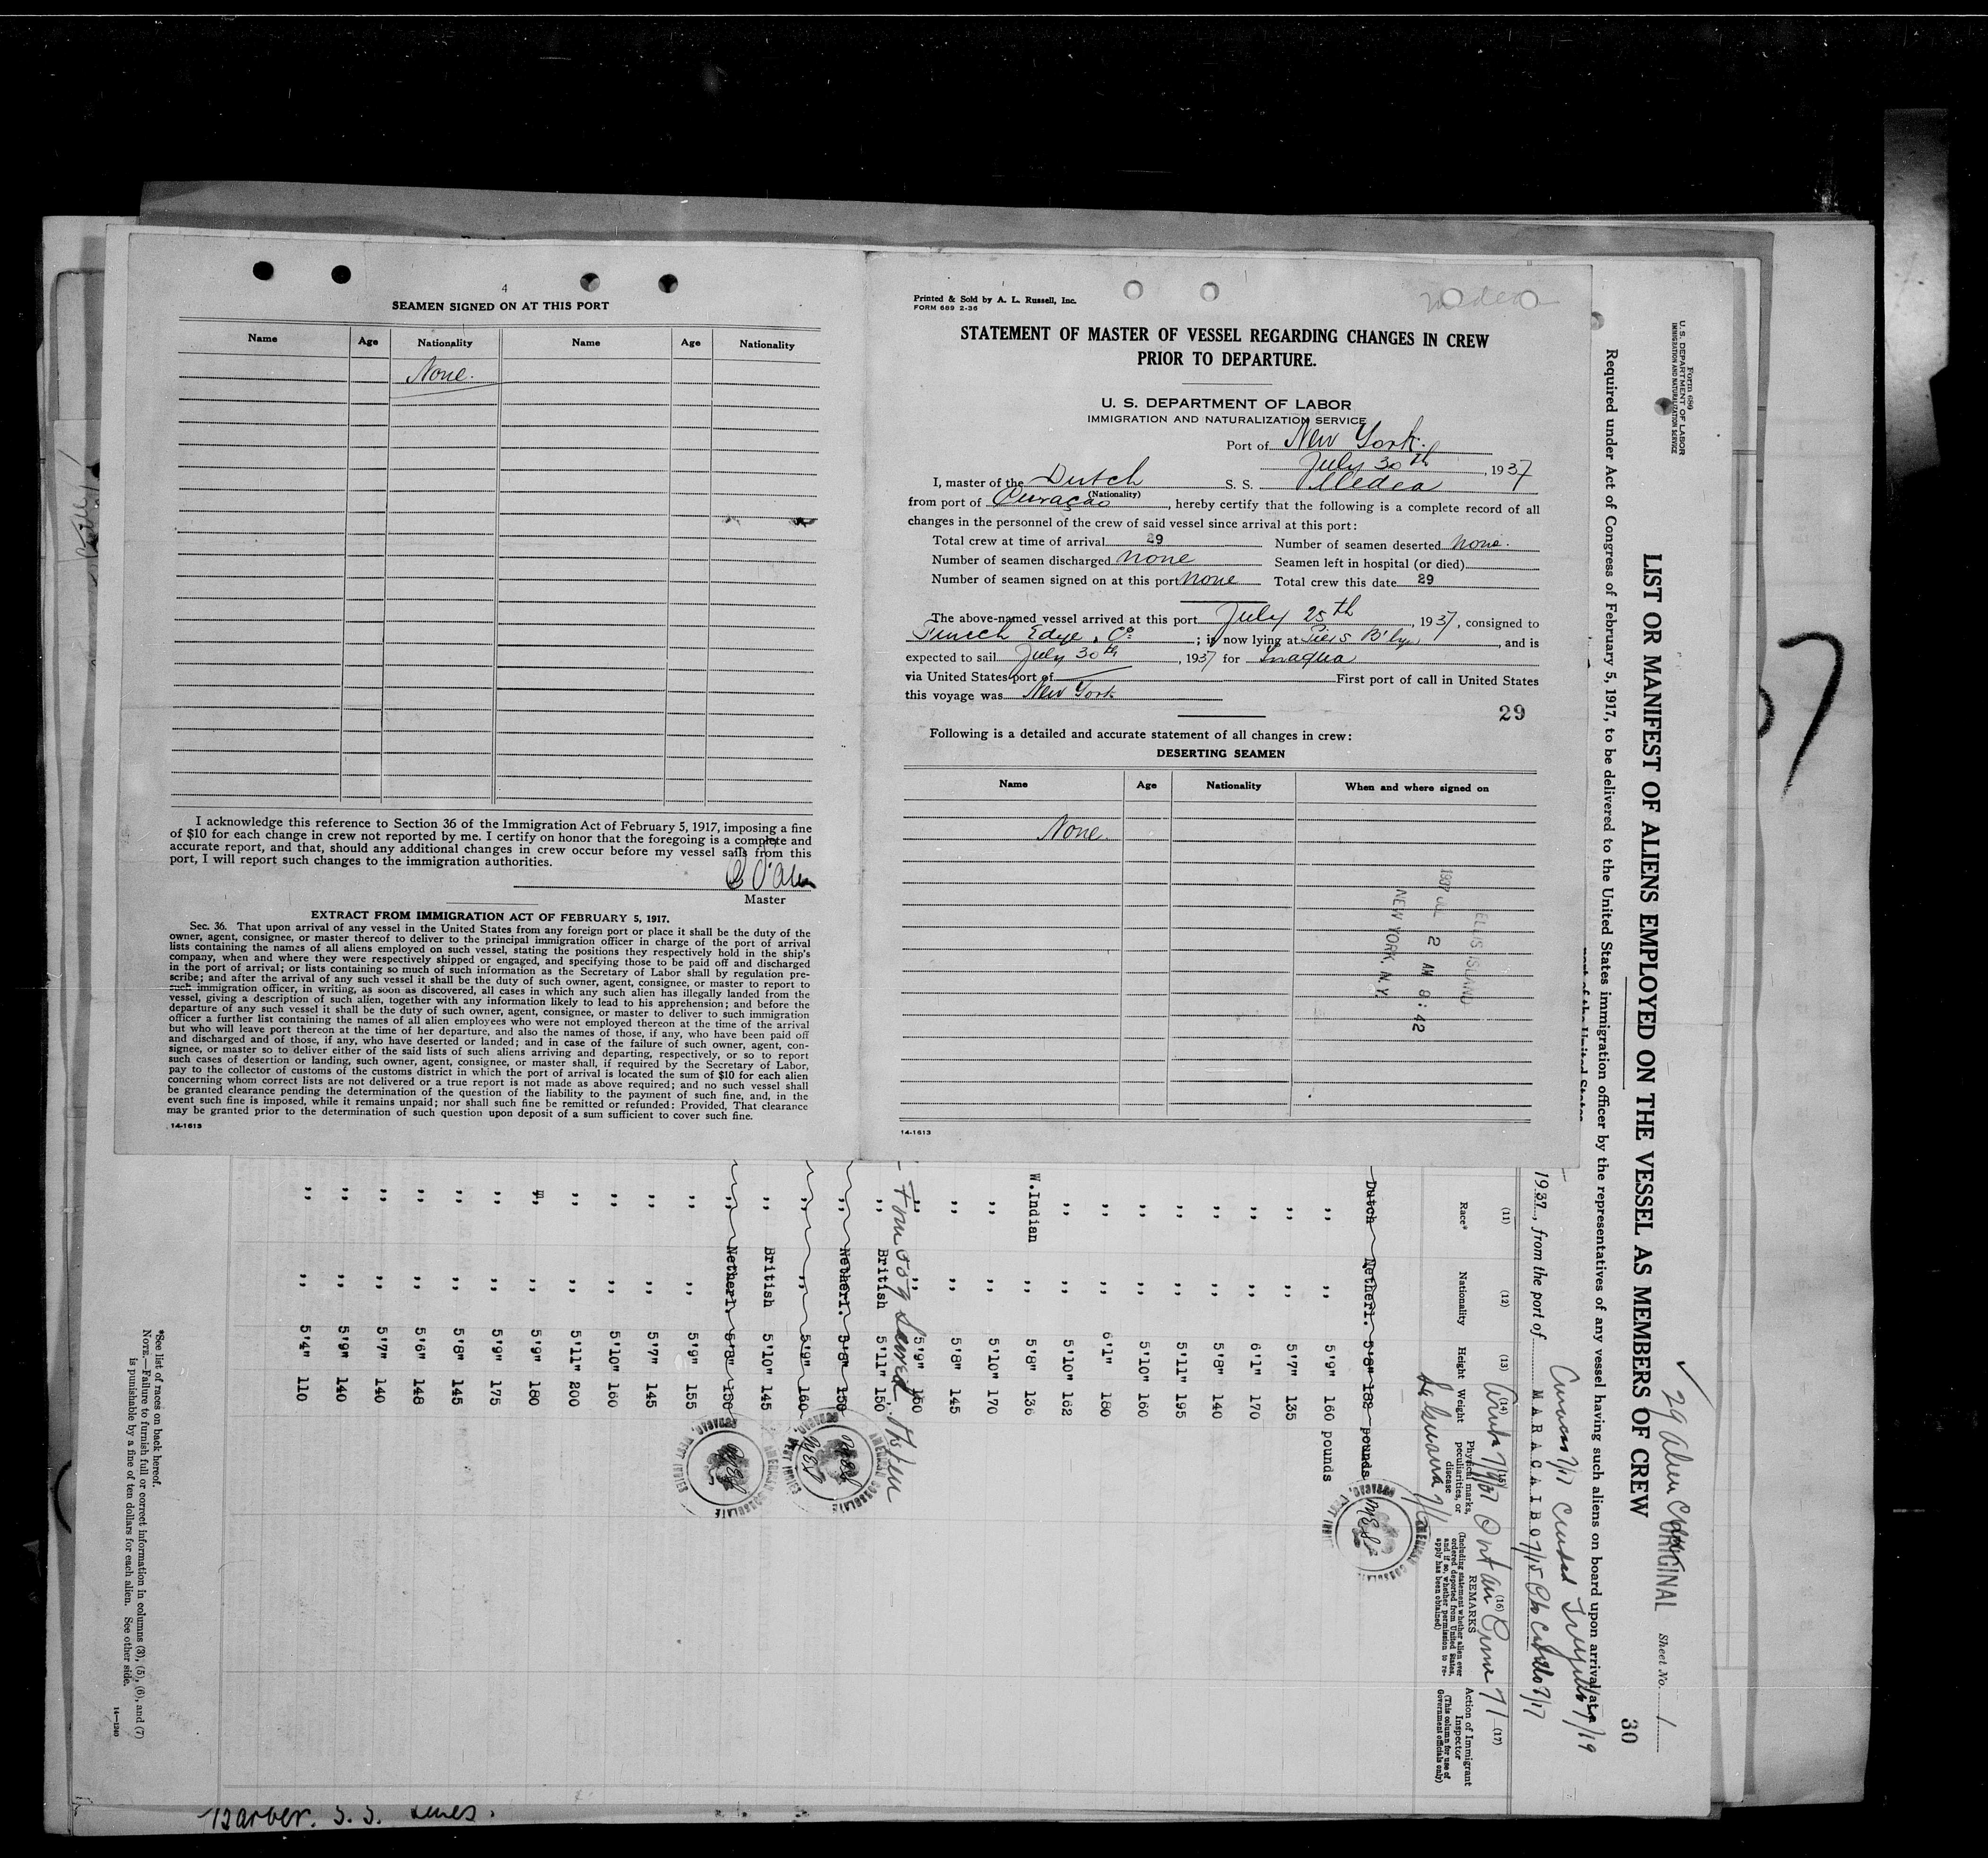 4
SEAMEN SIGNED ON AT THIS PORT
Name Age Nationality Name Age Nationality
None.
I acknowledge this reference to Section 36 of the Immigration Act of February 5, 1917, imposing a fine
of $10 for each change in crew not reported by me. I certify on honor that the foregoing is a complete and
accurate report, and that, should any additional changes in crew occur before my vessel sails from this
port, I will report such changes to the immigration authorities.
Master
EXTRACT FROM IMMIGRATION ACT OF FEBRUARY 5, 1917.
Sec. 36. That upon arrival of any vessel in the United States from any foreign port or place it shall be the duty of the
owner, agent, consignee, or master thereof to deliver to the principal immigration officer in charge of the port of arrival
lists containing the names of all aliens employed on such vessel, stating the positions they respectively hold in the ship's
company, when and where they were respectively shipped or engaged, and specifying those to be paid off and discharged
in the port of arrival; or lists containing so much of such information as the Secretary of Labor shall by regulation pre-
scribe; and after the arrival of any such vessel it shall be the duty of such owner, agent, consignee, or master to report to
such immigration officer, in writing, as soon as discovered, all cases in which any such alien has illegally landed from the
vessel, giving a description of such alien, together with any information likely to lead to his apprehension; and before the
departure of any such vessel it shall be the duty of such owner, agent, consignee, or master to deliver to such immigration
officer a further list containing the names of all alien employees who were not employed thereon at the time of the arrival
but who will leave port thereon at the time of her departure, and also the names of those, if any, who have been paid off
and discharged and of those, if any, who have deserted or landed; and in case of the failure of such owner, agent, con-
signee, or master so to deliver either of the said lists of such aliens arriving and departing, respectively, or so to report
such cases of desertion or landing, such owner, agent, consignee, or master shall, if required by the Secretary of Labor,
pay to the collector of customs of the customs district in which the port of arrival is located the sum of $10 for each alien
concerning whom correct lists are not delivered or a true report is not made as above required; and no such vessel shall
be granted clearance pending the determination of the question of the liability to the payment of such fine, and, in the
event such fine is imposed, while it remains unpaid; nor shall such fine be remitted or refunded: Provided, That clearance
may be granted prior to the determination of such question upon deposit of a sum sufficient to cover such fine.
14-1613
Printed & Sold by A. L. Russell, Inc.
FORM 689 2-36
Medea
STATEMENT OF MASTER OF VESSEL REGARDING CHANGES IN CREW
PRIOR TO DEPARTURE.
U. S. DEPARTMENT OF LABOR
IMMIGRATION AND NATURALIZATION SERVICE
Port of New York.
July 30th, 1937
I, master of the Dutch S. S. Medea
(Nationality)
from port of Curaçao, hereby certify that the following is a complete record of all
changes in the personnel of the crew of said vessel since arrival at this port:
Total crew at time of arrival 29 Number of seamen deserted None.
Number of seamen discharged None Seamen left in hospital (or died)
Number of seamen signed on at this port None Total crew this date 29
The above-named vessel arrived at this port July 25th, 1937, consigned to
Funch Edye & Co; is now lying at Pier 5 B'lyn, and is
expected to sail July 30th, 1937 for Inagua
via United States port of First port of call in United States
this voyage was New York
29
Following is a detailed and accurate statement of all changes in crew:
DESERTING SEAMEN
Name Age Nationality When and where signed on
None.
ELLIS ISLAND
1937 JUL 2 AM 8:42
NEW YORK, N.Y.
14-1613
Form 689
U. S. DEPARTMENT OF LABOR
IMMIGRATION AND NATURALIZATION SERVICE
29 Alien Crew
ORIGINAL
Sheet No. 1
LIST OR MANIFEST OF ALIENS EMPLOYED ON THE VESSEL AS MEMBERS OF CREW
30
Required under Act of Congress of February 5, 1917, to be delivered to the United States immigration officer by the representatives of any vessel having such aliens on board upon arrival at a
port of the United States
Curacao 7/17 Ciudad Trujillo 7/19
1937, from the port of MARACAIBO 7/15 Pto Cabello 7/17
(11) (12) (13) (14) (15) (16) (17)
Race* Nationality Height Weight Physical marks, peculiarities, or disease REMARKS (Including statement whether alien ever ordered deported from United States, and if so, whether permission to re-apply has been obtained) Action of Immigrant Inspector (This column for use of Government officials only)
Dutch Netherl. 5'8" 182 pounds
,, ,, 5'9" 160 pounds
,, ,, 5'7" 135
,, ,, 6'1" 170
,, ,, 5'8" 140
,, ,, 5'11" 195
,, ,, 5'10" 160
,, ,, 6'1" 180
,, ,, 5'10" 162
W.Indian ,, 5'8" 136
,, ,, 5'10" 170
,, ,, 5'8" 145
,, ,, 5'9" 160
,, British 5'11" 150
,, Netherl. 5'8" 150
,, ,, 5'9" 160
,, British 5'10" 145
,, Netherl. 5'8" 130
,, ,, 5'9" 155
,, ,, 5'7" 145
,, ,, 5'10" 160
,, ,, 5'11" 200
,, ,, 5'9" 180
,, ,, 5'9" 175
,, ,, 5'8" 145
,, ,, 5'6" 148
,, ,, 5'7" 140
,, ,, 5'9" 140
,, ,, 5'4" 110
AMERICAN CONSULATE
CURAÇAO, WEST INDIES
AMERICAN CONSULATE
CURAÇAO, WEST INDIES
AMERICAN CONSULATE
CURAÇAO, WEST INDIES
*See list of races on back hereof.
NOTE.—Failure to furnish full or correct information in columns (3), (5), (6), and (7)
is punishable by a fine of ten dollars for each alien. See other side.
14—1240
Barber. S. S. Lines.
7